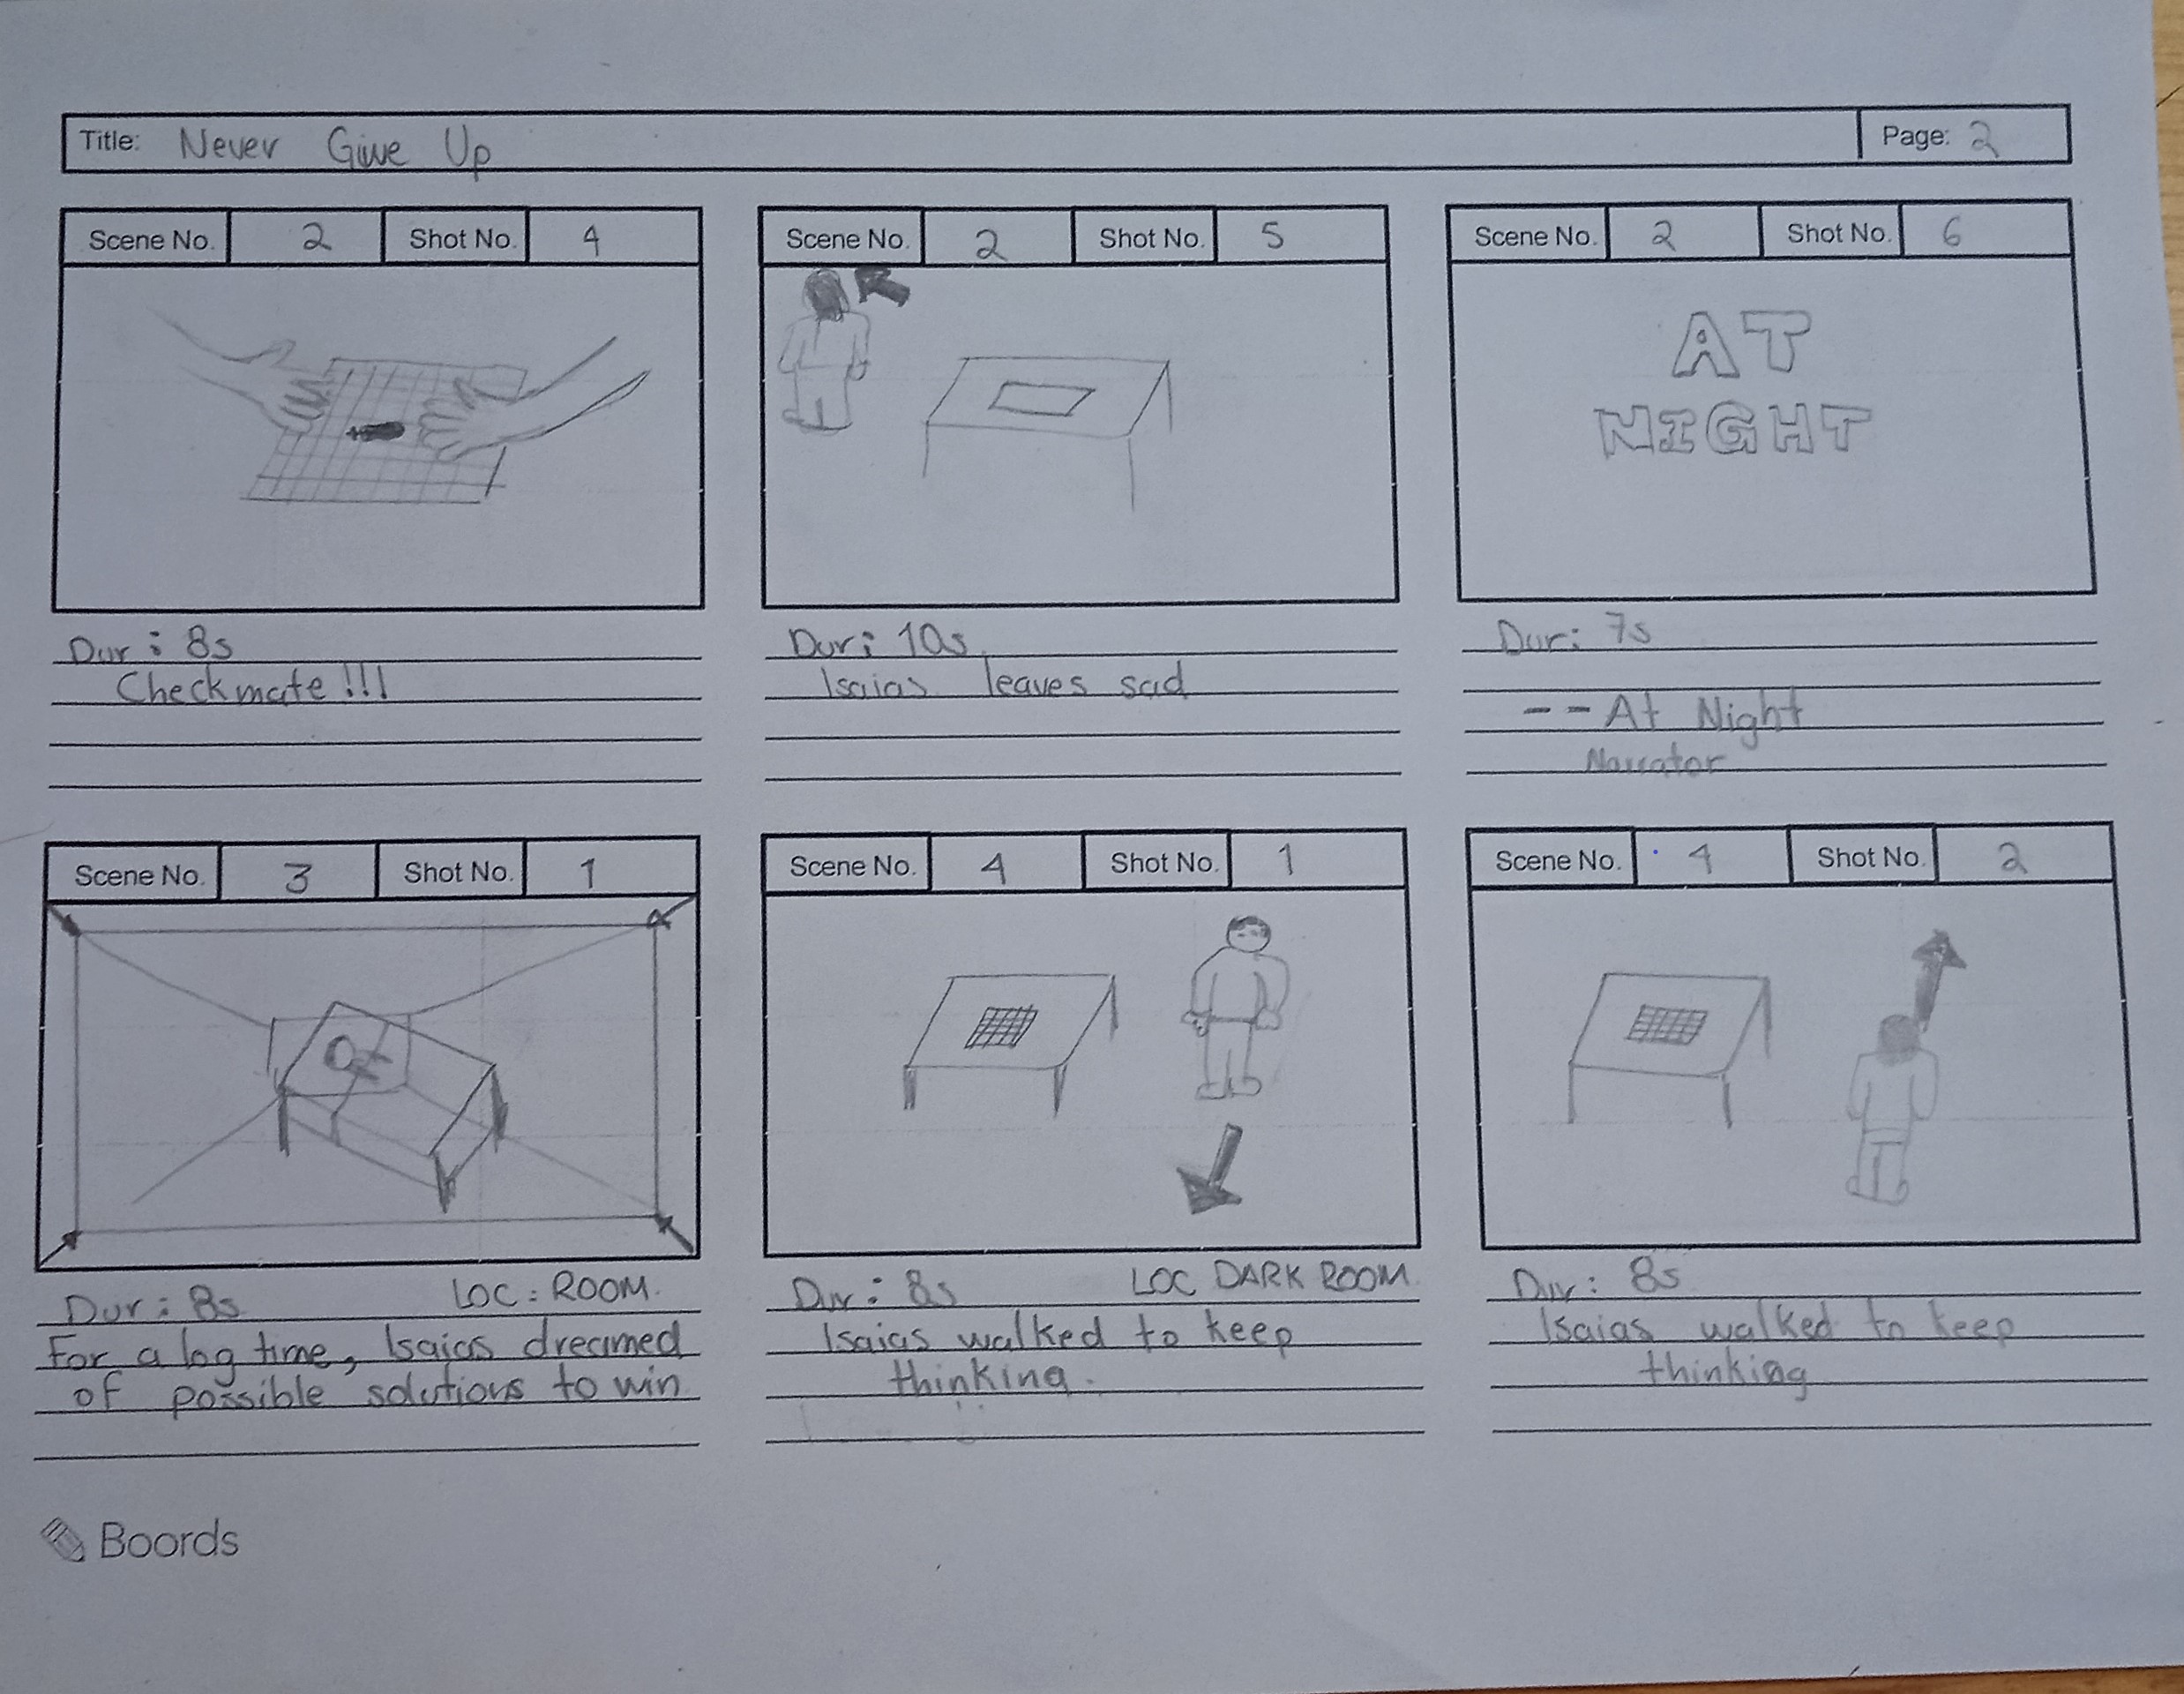 Title: Never Give Up Page: 2
Scene No. 2 Shot No. 4
Dur: 8s
Checkmate!!!
Scene No. 2 Shot No. 5
Dur: 10s
Isaias leaves sad
Scene No. 2 Shot No. 6
AT
NIGHT
Dur: 7s
-- At Night
Narrator
Scene No. 3 Shot No. 1
Dur: 8s LOC: ROOM.
For a log time, Isaias dreamed
of possible solutions to win
Scene No. 4 Shot No. 1
Dur: 8s LOC DARK ROOM
Isaias walked to keep
thinking.
Scene No. 4 Shot No. 2
Dur: 8s
Isaias walked to keep
thinking
Boords